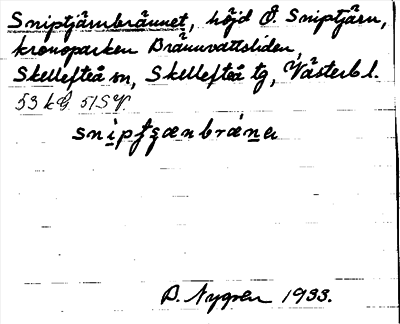 Sniptjärnbrännet, höjd Ö. Sniptjärn,
kronoparken Brännvattsliden,
Skellefteå sn, Skellefteå tg, Västerb l.
53 kG 51 SV.
D. Nygren 1933.